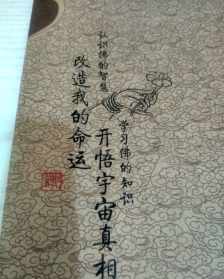 认识佛的智慧
改造我的命运
学习佛的知识
开悟宇宙真相